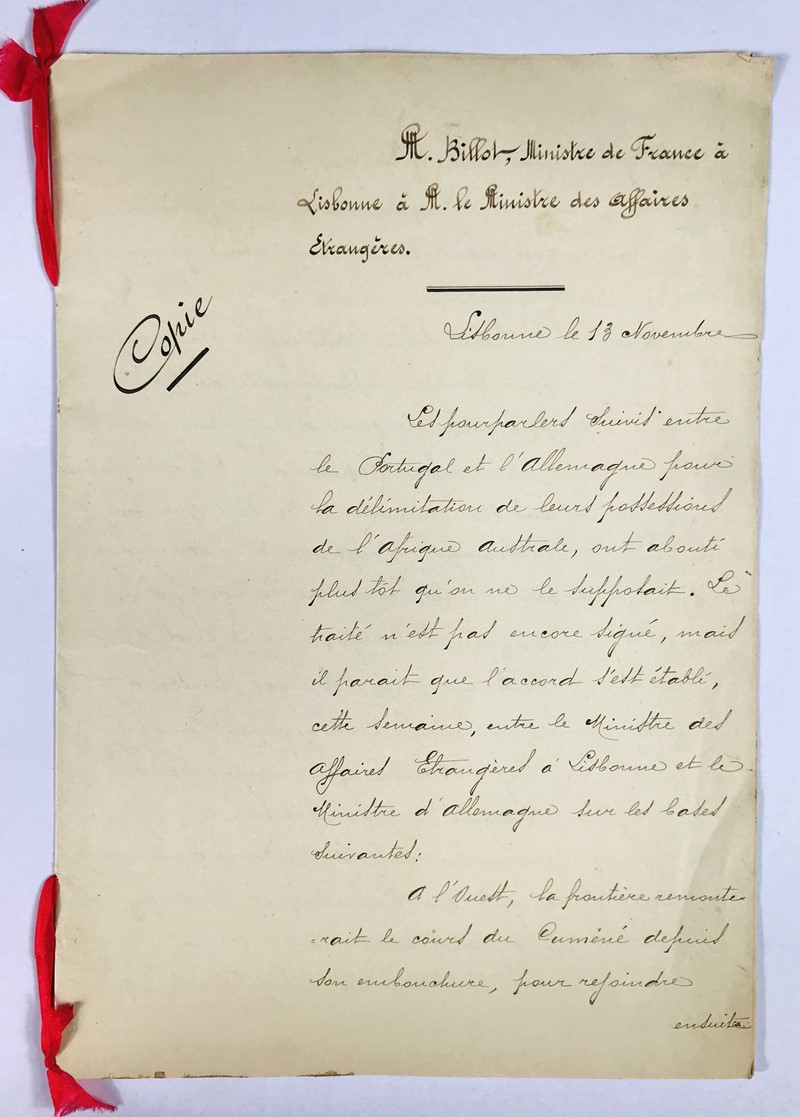 M. Billot, Ministre de France à
Lisbonne à M. le Ministre des Affaires
Etrangères.
Copie
Lisbonne le 13 Novembre
Les pourparlers suivis entre
le Portugal et l'Allemagne pour
la délimitation de leurs possessions
de l'Afrique Australe, ont abouti
plus tôt qu'on ne le supposait. Le
traité n'est pas encore signé, mais
il parait que l'accord s'est établi,
cette semaine, entre le Ministre des
Affaires Etrangères à Lisbonne et le
Ministre d'Allemagne sur les bases
suivantes:
A l'Ouest, la frontière remonte-
=rait le cours du Cuméné depuis
son embouchure, pour rejoindre
ensuite